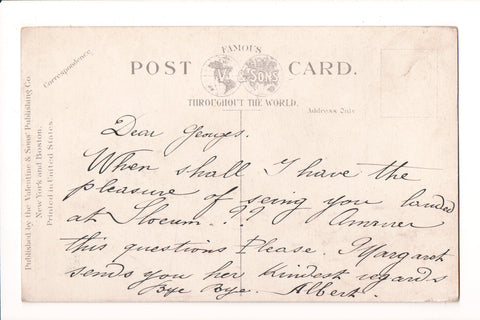 FAMOUS
POST CARD.
V. & SONS
THROUGHOUT THE WORLD.
Correspondence.
Address Only
Published by the Valentine & Sons' Publishing Co.
New York and Boston.
Printed in United States.
Dear Georges.
When shall I have the
pleasure of seing you landed
at Slocum. ?? Answer
this questions Please. Margaret
sends you her Kindest regards
Bye Bye. Albert.